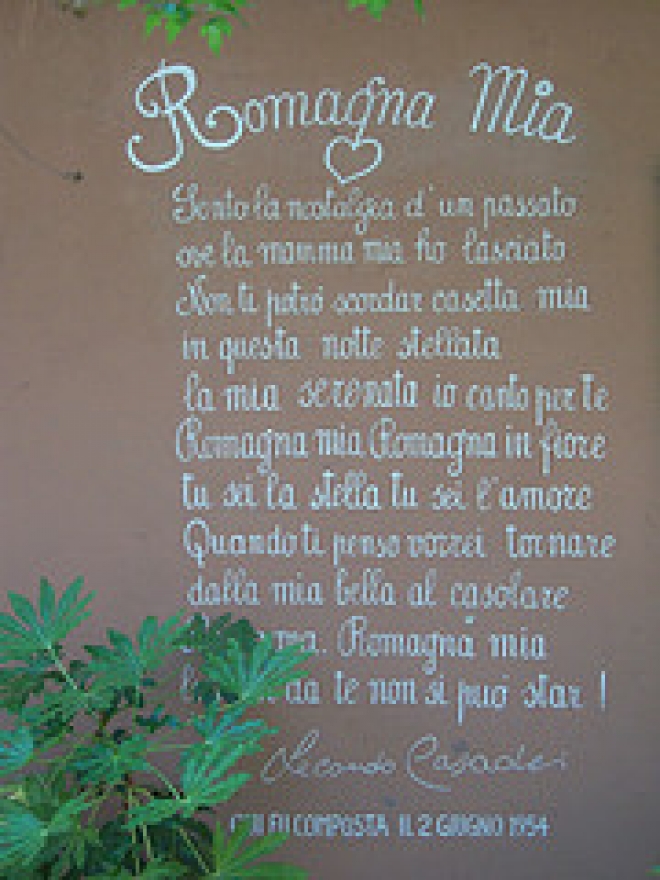 Romagna Mia
Sento la nostalgia d'un passato
ove la mamma mia ho lasciato
Non ti potró scordar casetta mia
in questa notte stellata
la mia serenata io canto per te
Romagna mia Romagna in fiore
tu sei la stella tu sei l'amore
Quando ti penso vorrei tornare
dalla mia bella al casolare
Romagna mia
da te non si puó star !
Secondo Casadei
QUI FU COMPOSTA IL 2 GIUGNO 1954